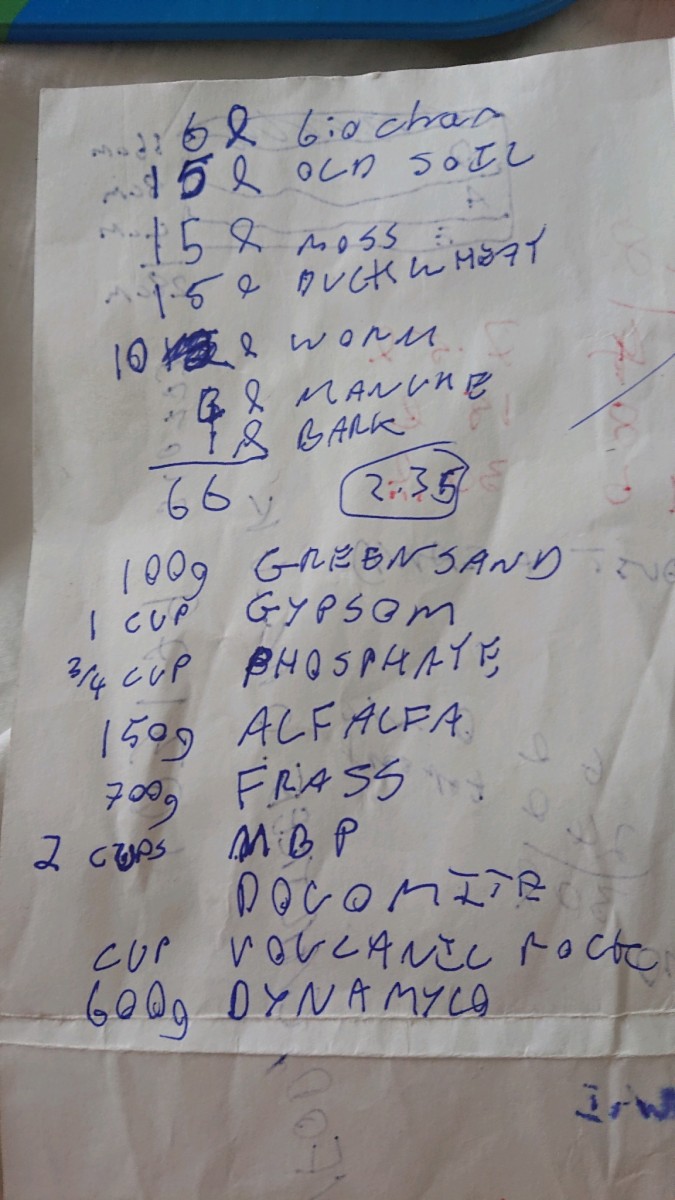 6 l biochar
15 l OLD SOIL
15 l MOSS
15 l BUCKWHEAT
10 l WORM
4 l MANURE
1 l BARK
66
2.35
100g GREENSAND
1 CUP GYPSOM
3/4 CUP PHOSPHATE
150g ALFALFA
700g FRASS
2 CUPS MBP
DOLOMITE
CUP VOLCANIC ROCK
600g DYNAMYCO